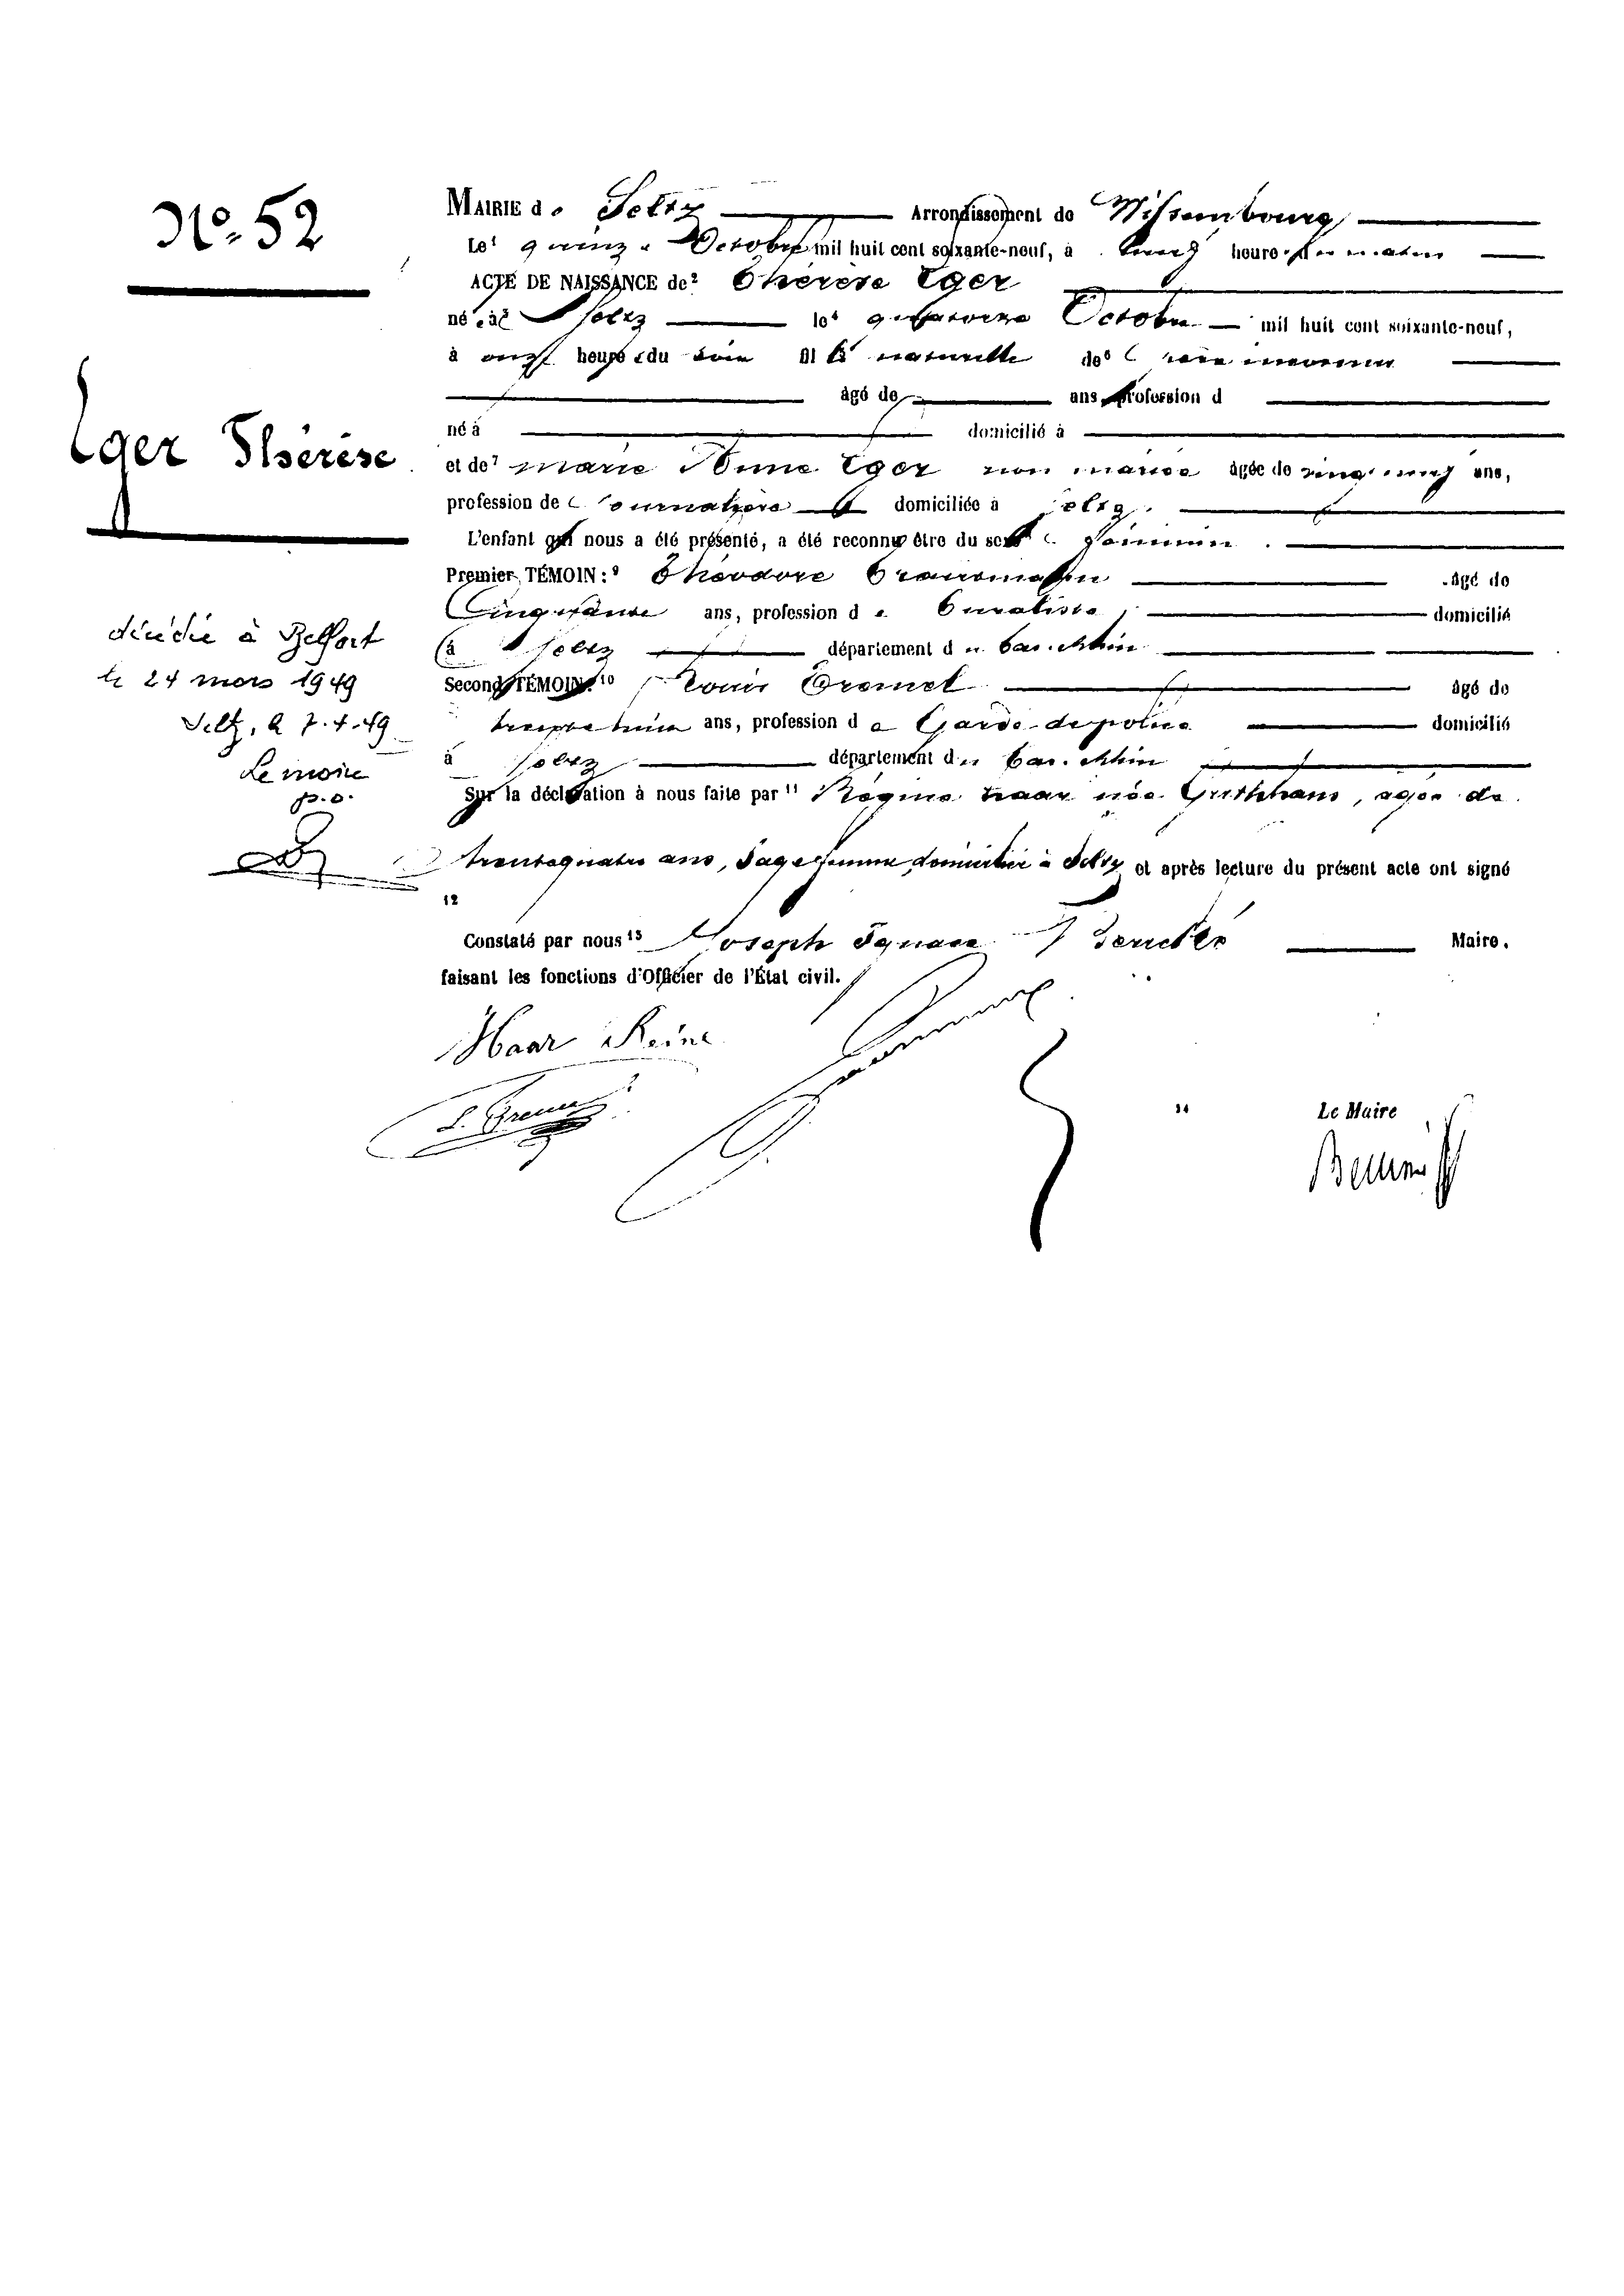 No. 52
Eger Thérèse
décédée à Belfort
le 24 mars 1949
Seltz, le 7.4.49
Le maire
p.o.
MAIRIE de Seltz Arrondissement de Wissembourg
Le¹ quinze Octobre mil huit cent soixante-neuf, à neuf heures du matin
ACTE DE NAISSANCE de² Thérèse Eger
née à³ Seltz le⁴ quatorze Octobre mil huit cent soixante-neuf,
à onze heures du soir fille naturelle de⁶ père inconnu
âgé de ans, profession d
né à domicilié à
et de⁷ Marie Anne Eger non mariée âgée de vingt neuf ans,
profession de Journalière domiciliée à Seltz.
L'enfant qui nous a été présenté, a été reconnu être du sexe féminin.
Premier TÉMOIN:⁹ Théodore âgé de
Cinquante ans, profession de Buraliste domicilié
à Seltz département du Bas-Rhin
Second TÉMOIN:¹⁰ Louis âgé de
trente huit ans, profession de Garde-de-police domicilié
à Seltz département du Bas-Rhin
Sur la déclaration à nous faite par¹¹ Régine Haar née , âgée de
trente quatre ans, Sage femme, domiciliée à Seltz et après lecture du présent acte ont signé
12
Constaté par nous¹³ Joseph Ignace Maire.
faisant les fonctions d'Officier de l'État civil.
Haar Reine
14 Le Maire